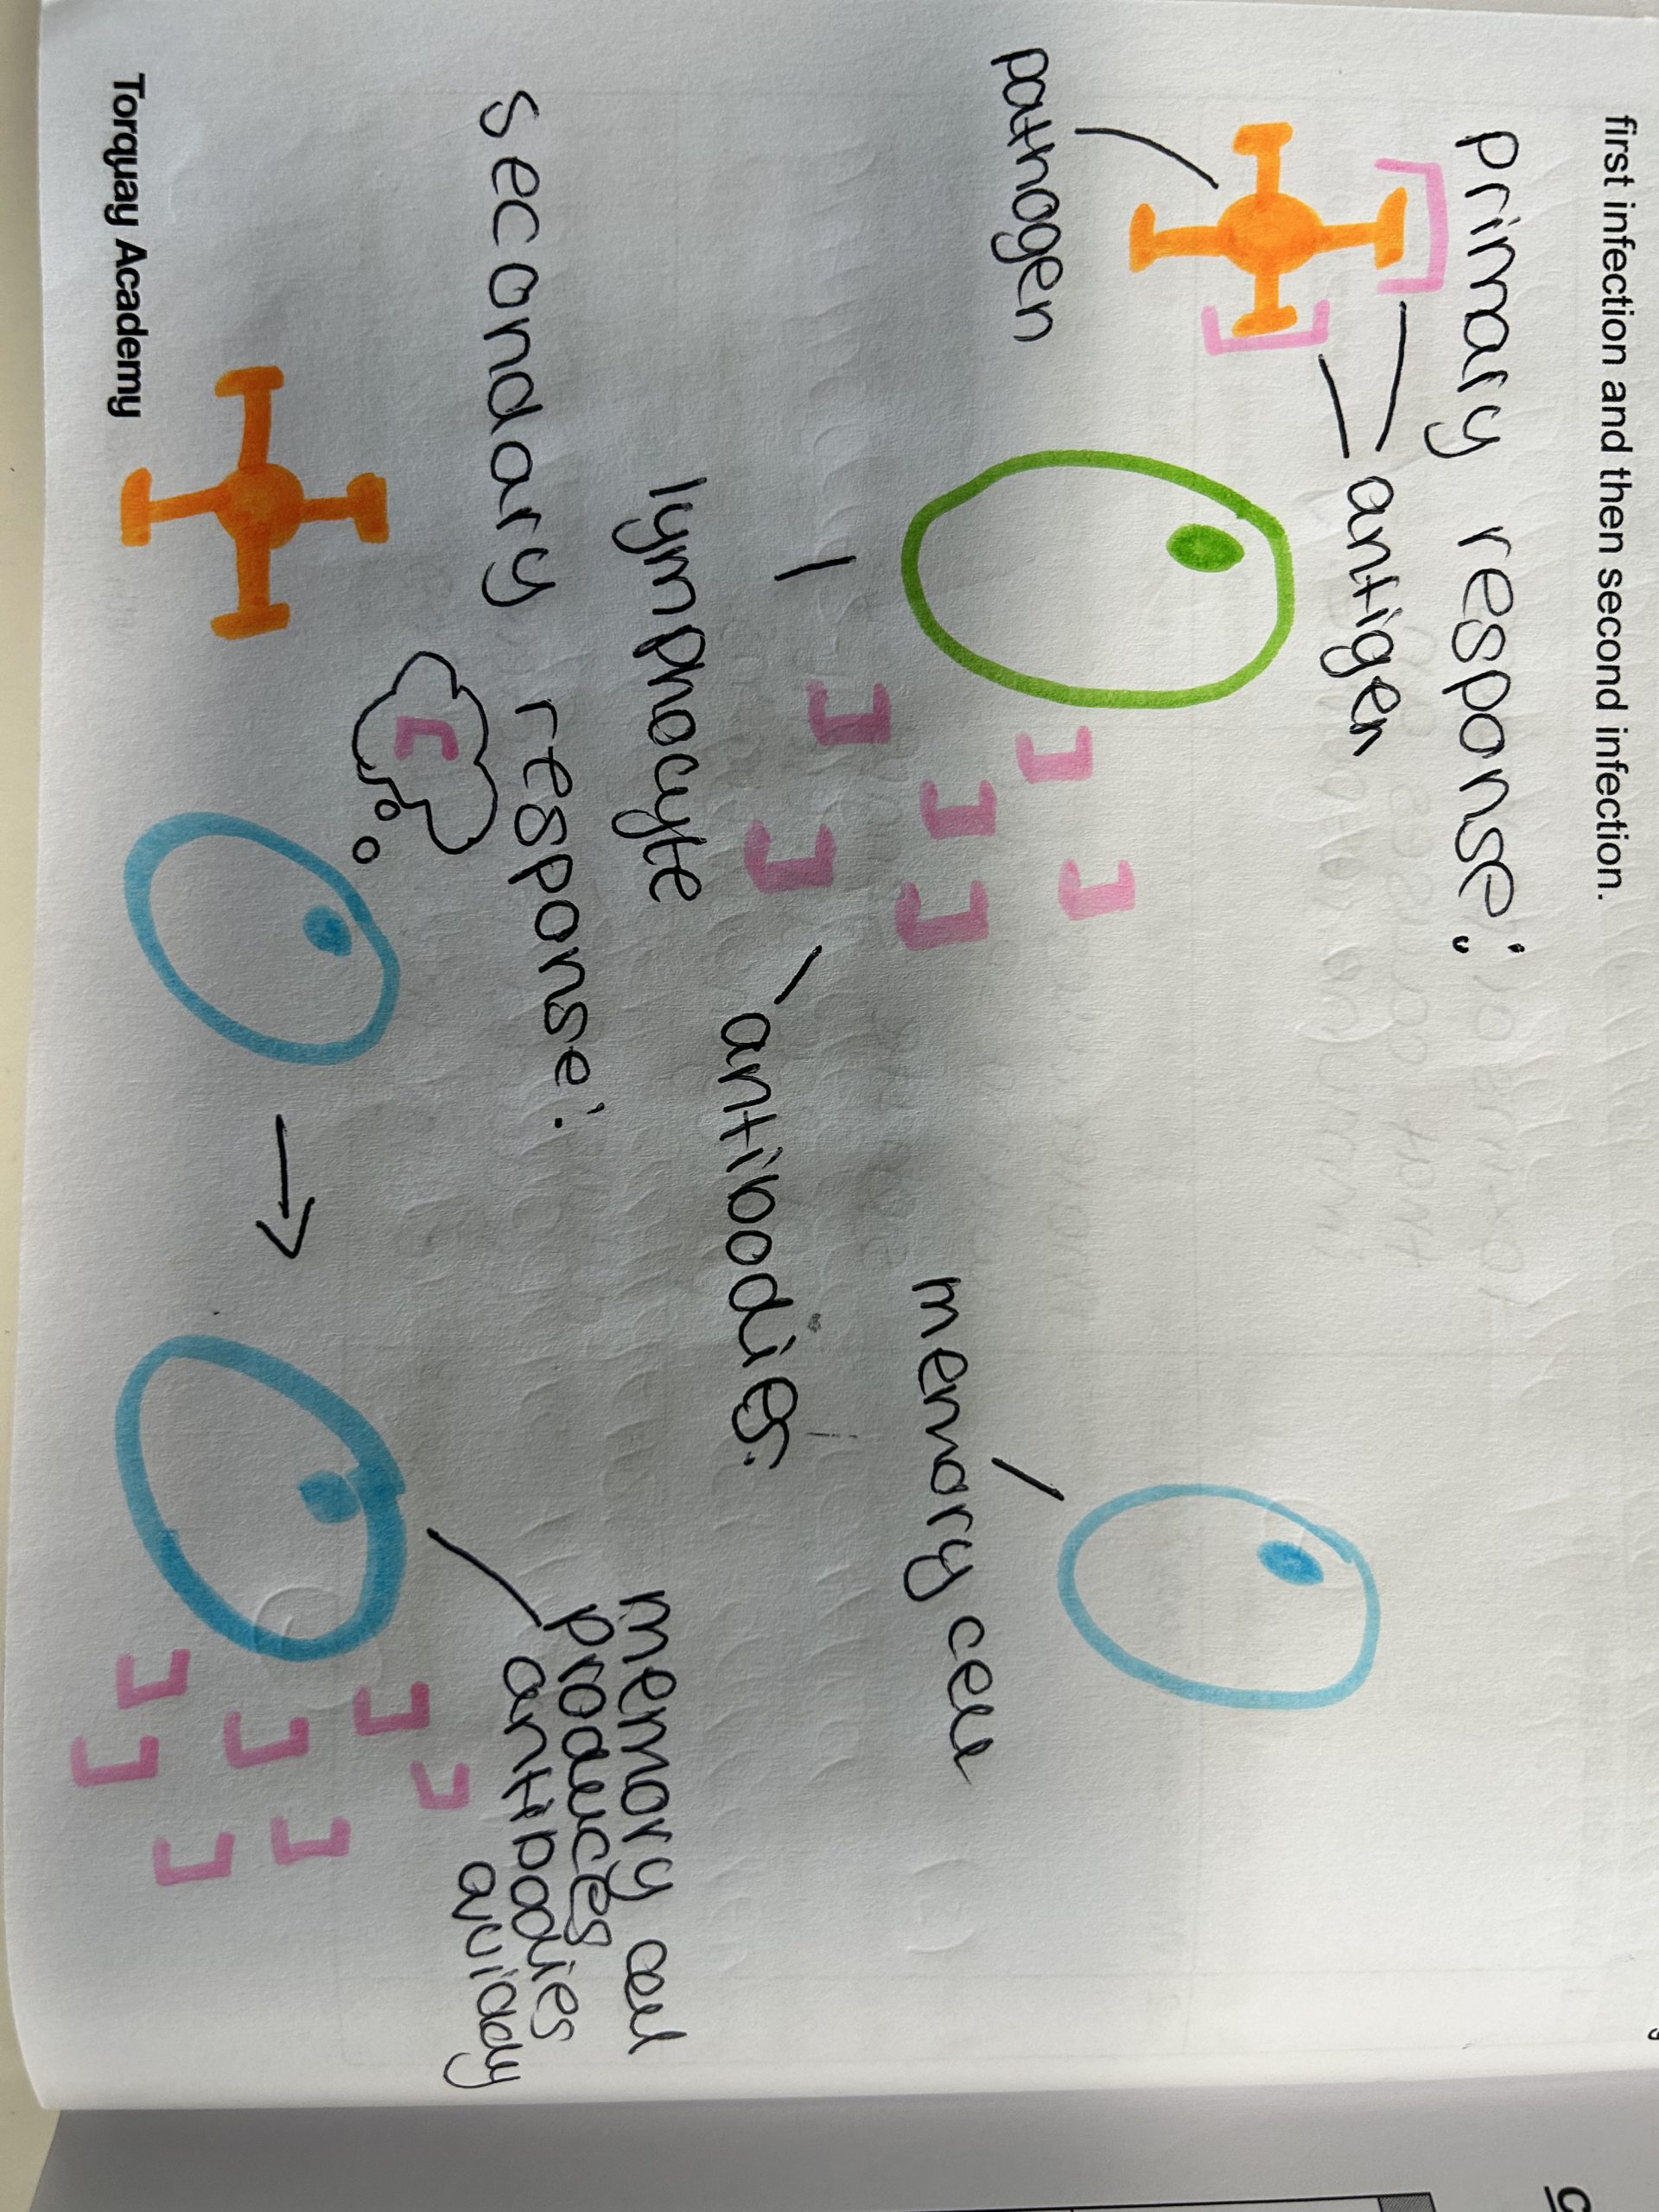 first infection and then second infection.
primary response:
antigen
pathogen
lymphocyte
antibodies
memory cell
secondary response:
memory cell
produces
antibodies
quickly
Torquay Academy